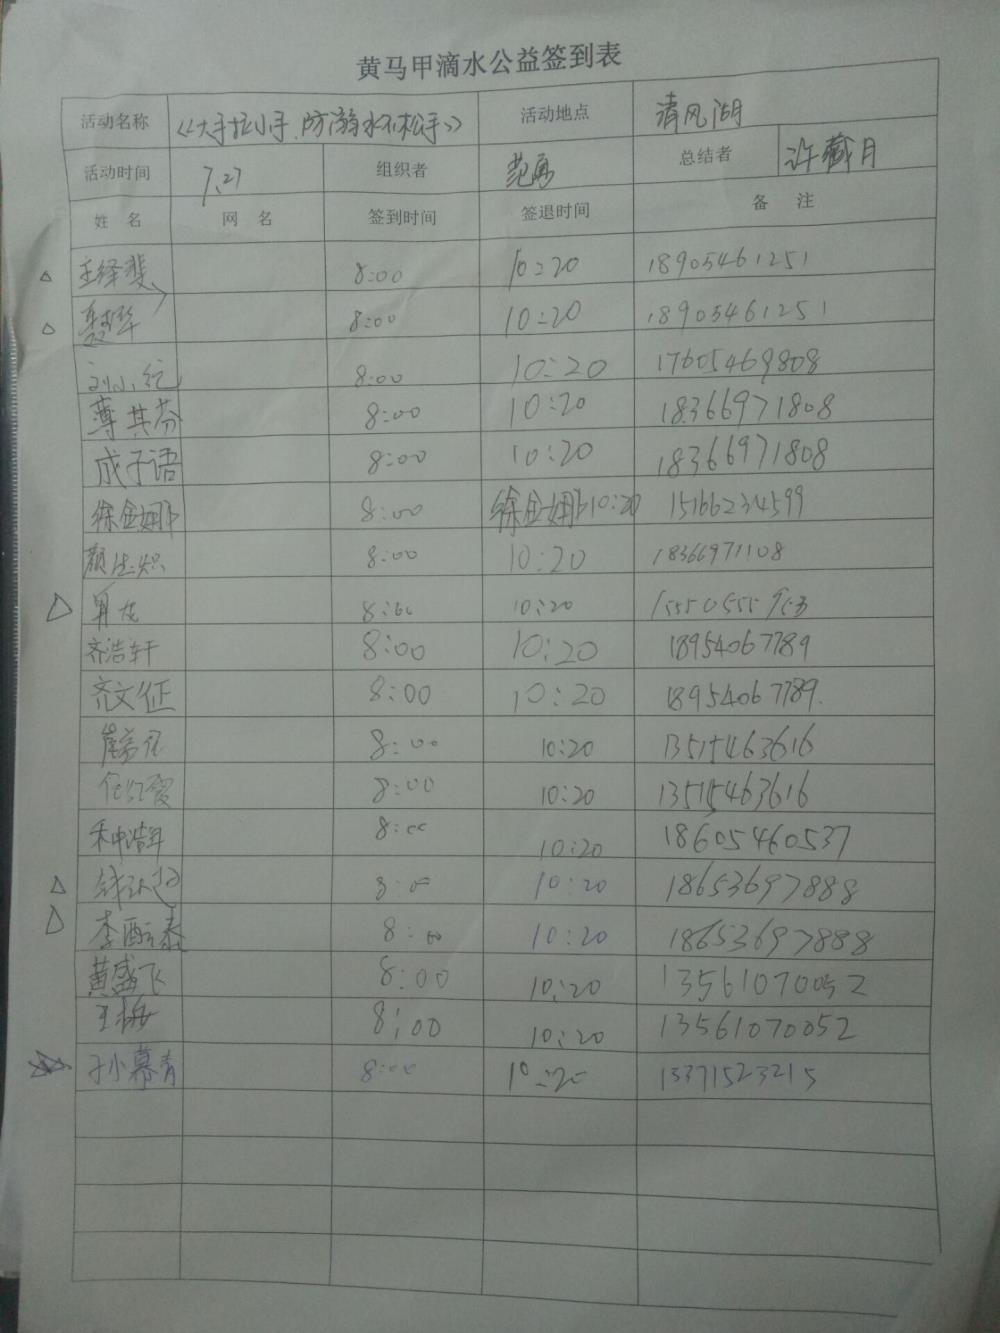 黄马甲滴水公益签到表
活动名称 《大手拉小手、防溺水不松手》 活动地点 清风湖
活动时间 7.27 组织者 范勇 总结者 许藏月
姓 名 网 名 签到时间 签退时间 备 注
王绎斐 8:00 10:20 18905461251
8:00 10:20 18905461251
8:00 10:20 17605469808
薄其芬 8:00 10:20 18366971808
成子语 8:00 10:20 18366971808
徐金娜 8:00 徐金娜 10:20 15166234599
8:00 10:20 18366971108
8:00 10:20
齐浩轩 8:00 10:20 18954067789
齐文征 8:00 10:20 18954067789.
8:00 10:20 13515463616
任红霞 8:00 10:20 13515463616
8:00 10:20 18605460537
8:00 10:20 18653697888
李酩泰 8:00 10:20 18653697888
黄盛飞 8:00 10:20 13561070052
王梅 8:00 10:20 13561070052
孙慕青 8:00 10:20 13371523215